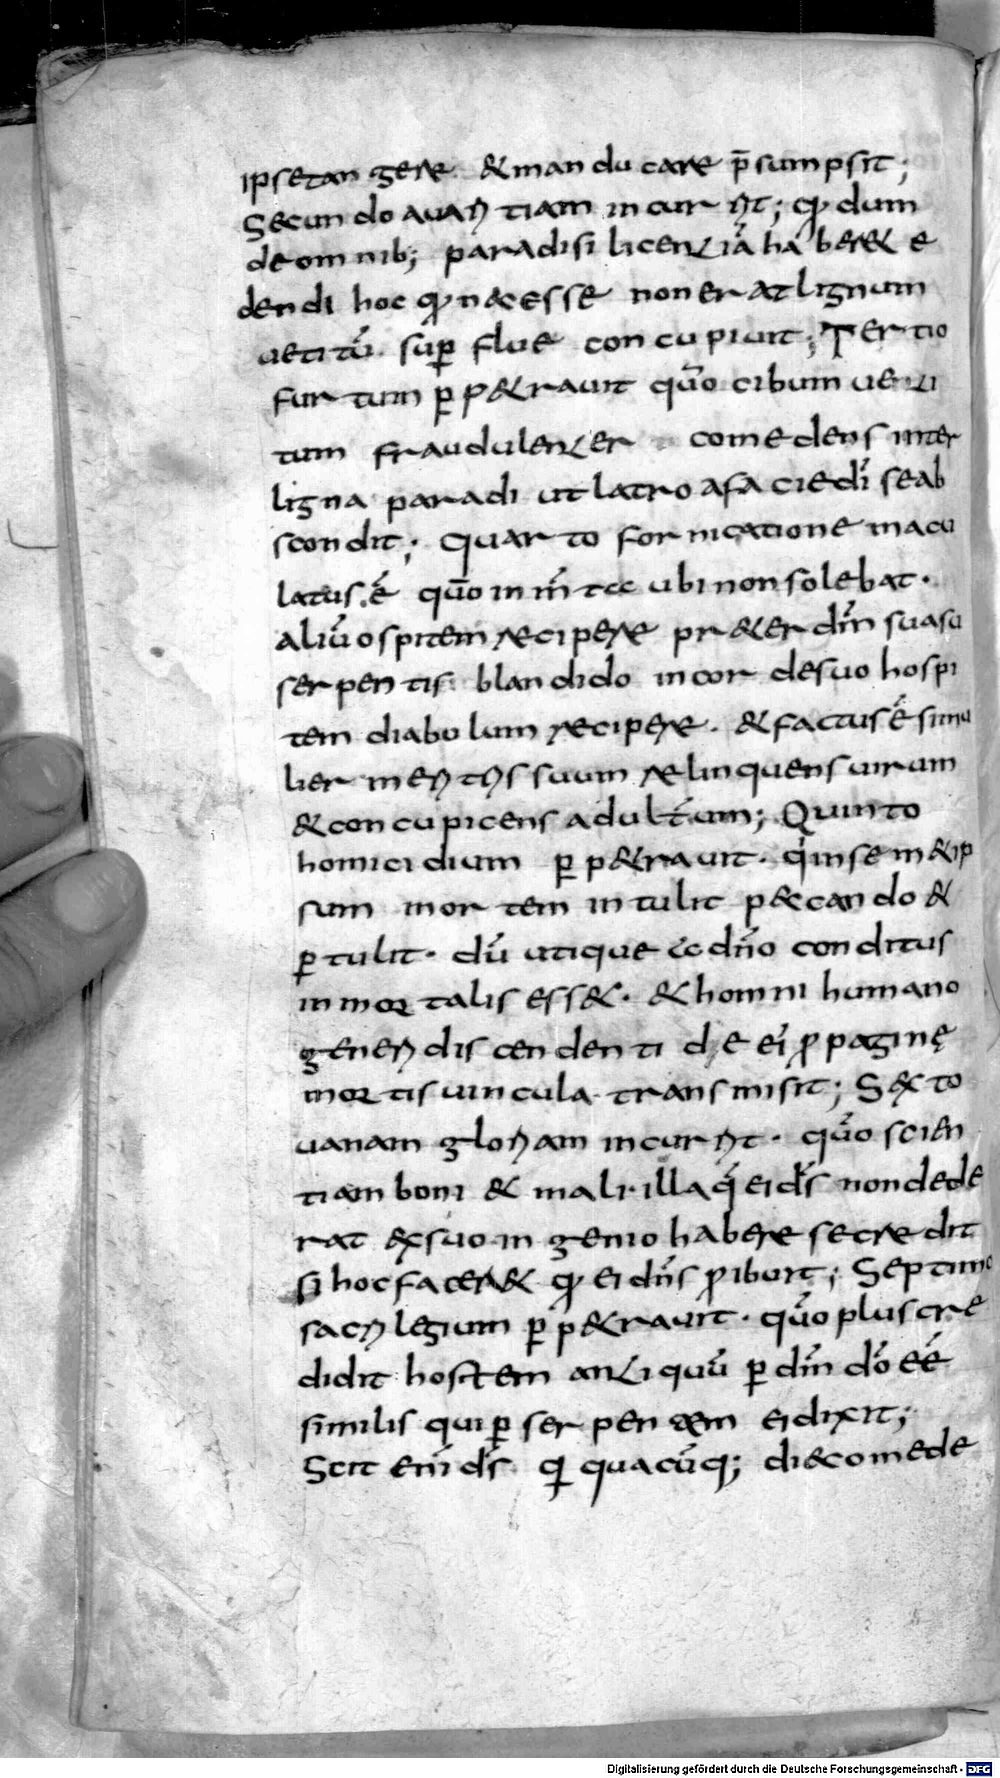 ipsetangere & manducare p̄sumpsit;
Secundo auaritiam incurrit; qđ dum
de omnib; paradisi licentiā haberet e
dendi hoc qđ necesse non erat lignum
uetitū sup̱flue concupiuit; Tertio
furtum p̱p&rauit quō cibum ueti
tum fraudulenter comedens inter
ligna paradi ut latro afaciedī seab
scondit; Quarto fornicatione macu
latus.ē quō in m̄te ubi non solebat.
aliū ospitem recipere pr&er dn̄m suasu
serpentis blandido in cor de suo hospi
tem diabulum recipere. & factusē simu
lier meritis suum relinquens uirum
& concupicens adult̄um; Quinto
homicidium p̱p&rauit. qinsem&ip
sum mortem intulit peccando &
p̱tulit. dū utique addn̄o conditus
inmortalis ess&. & homni humano
generi discendenti de ei ꝓpaginę
mortis uincula transmisit; Sexto
uanam gloriam incurrit. quō scien
tiam boni & mali. illa q̄ ei ds̄ non dede
rat &xsuo ingenio habere se credit
si hoc facer& qđ ei dn̄s ꝓibuit; Septimo
sacrilegium p̱p&rauit. quō plus cre
didit hostem antiquū p̱ dn̄m dō eē
similis qui p̱ serpentem ei dixit;
Scit enī ds̄ qđ quacūq; die comede
Digitalisierung gefördert durch die Deutsche Forschungsgemeinschaft - DFG